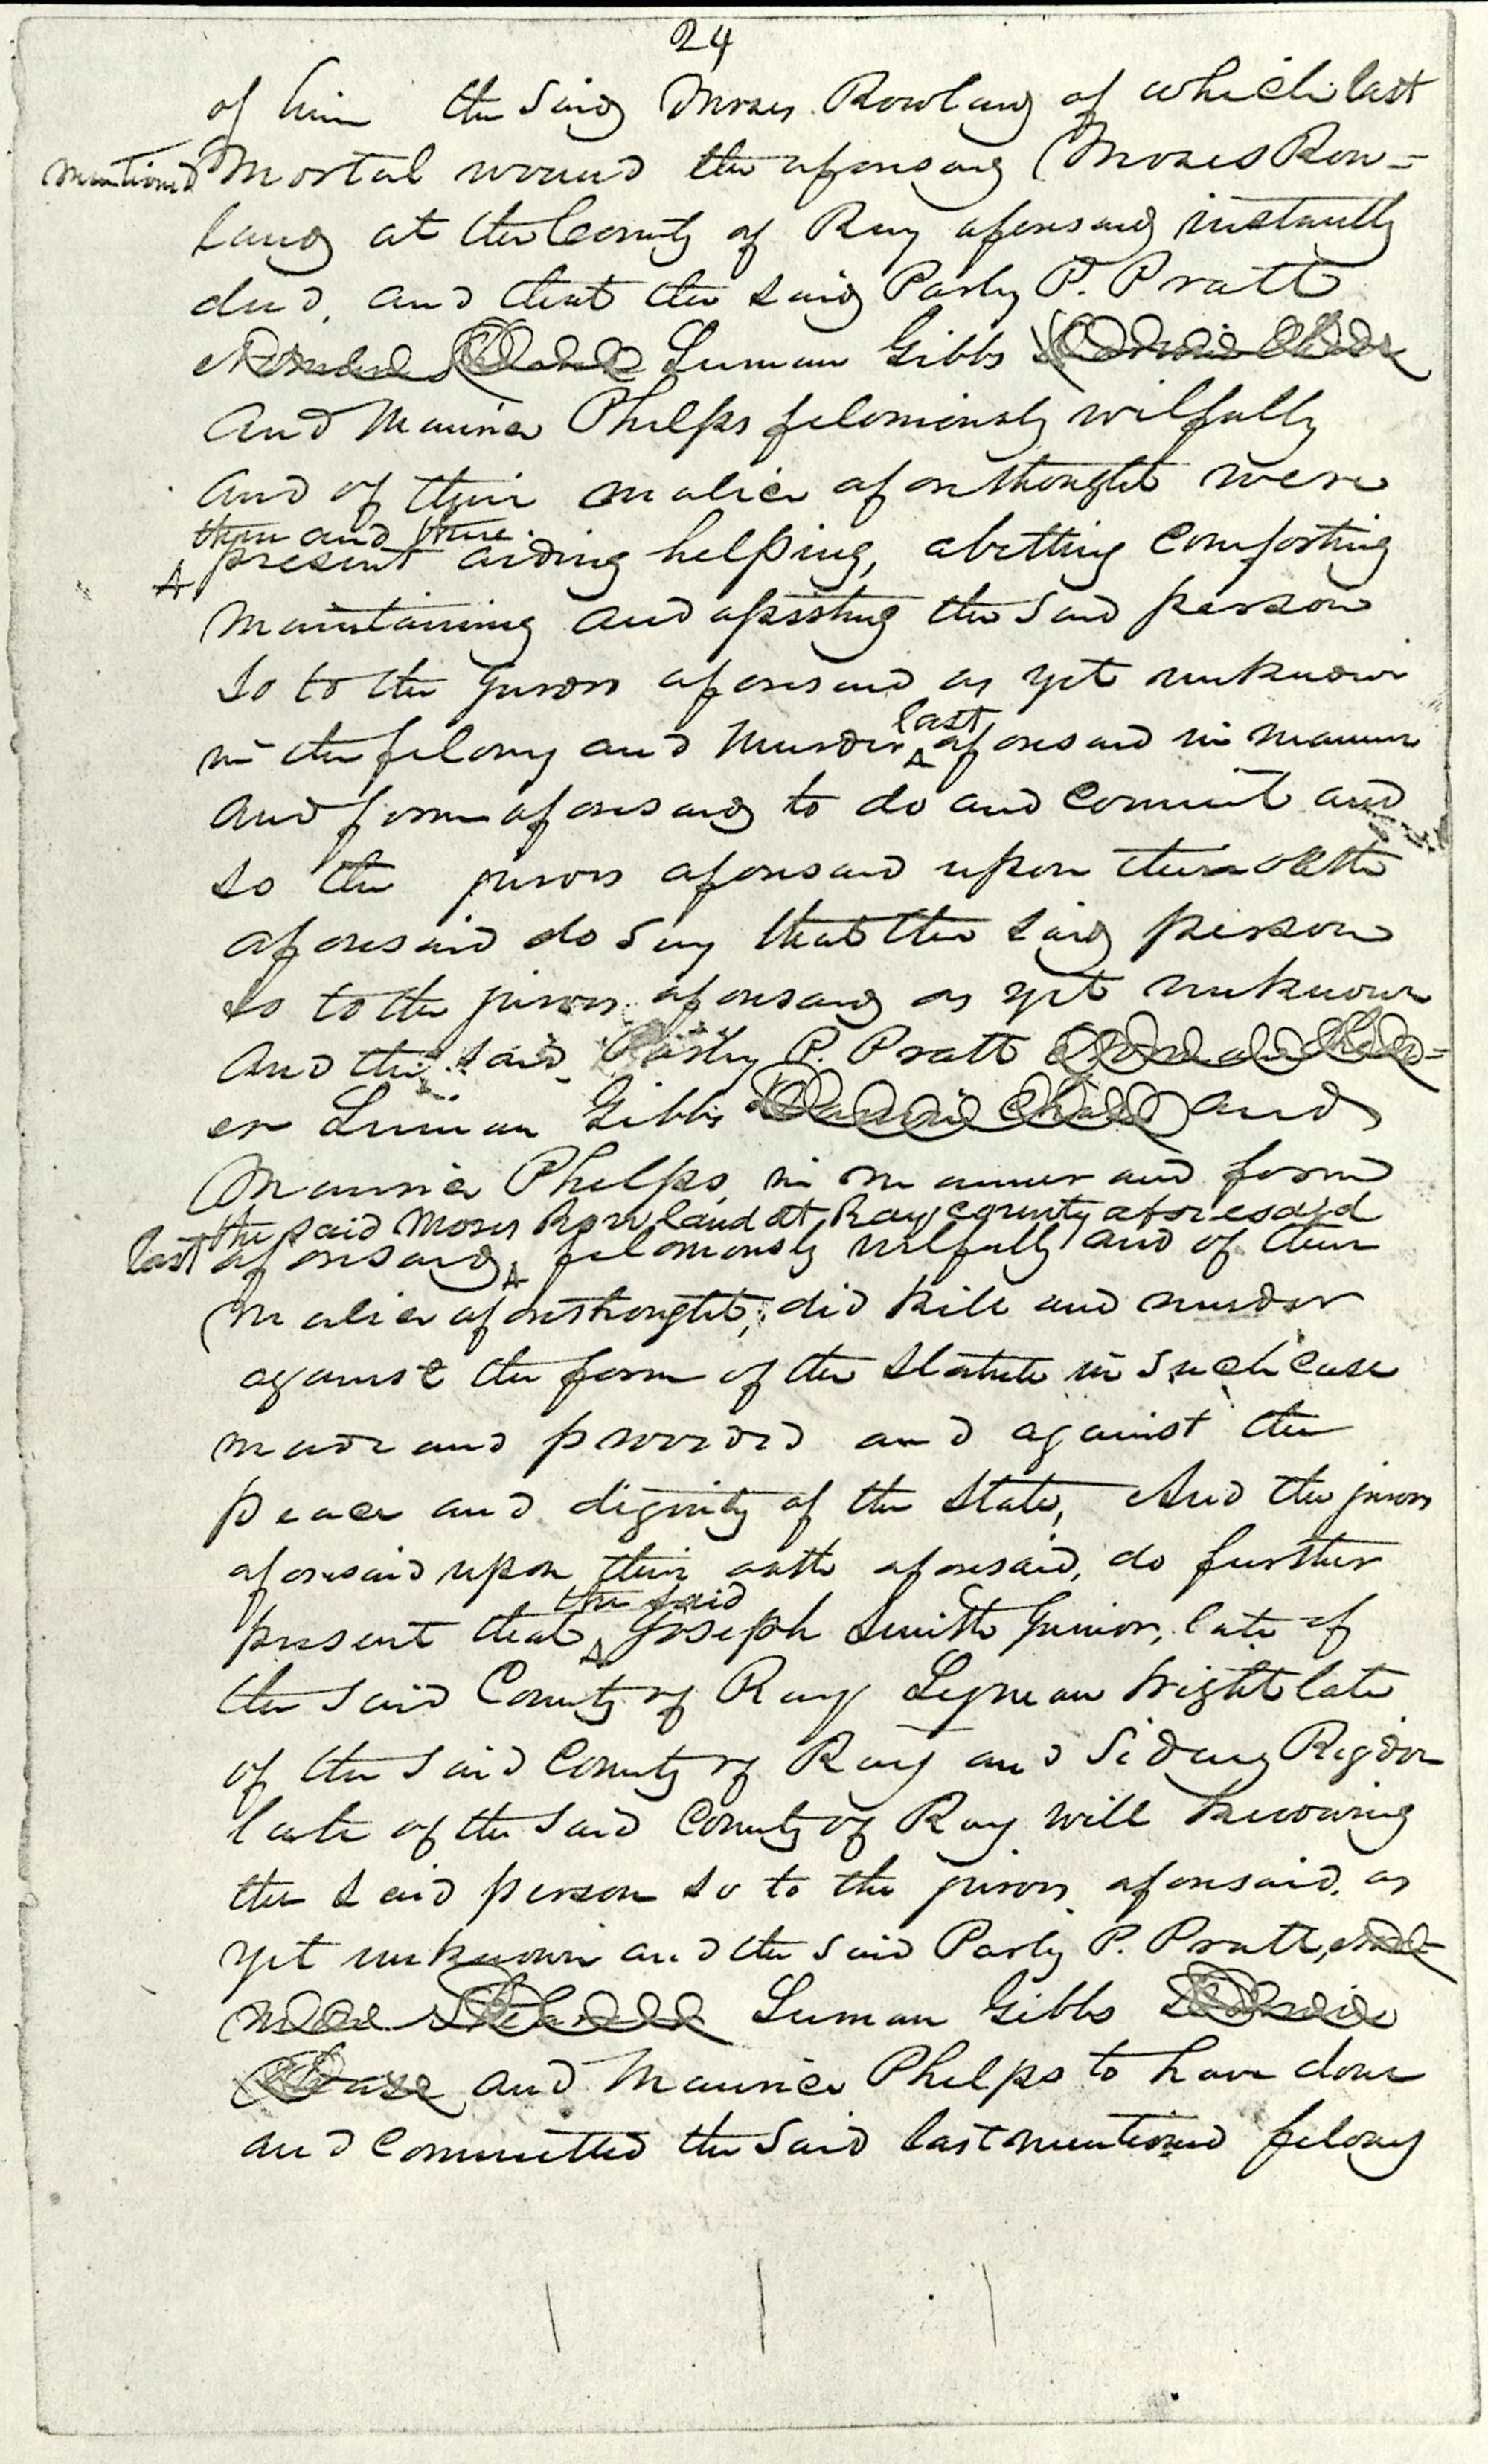 24
of him the said Moses Rowland of which last
mentioned mortal wound the aforesaid Moses Row=
land at the County of Ray aforesaid instantly
died, and that the said Parly P. Pratt
Luman Gibbs
and Maurice Phelps feloniously wilfully
and of their malice aforethought were
then and there
present aiding helping, abetting comforting
maintaining and assisting the said person
so to the jurors aforesaid as yet unknown
last
in the felony and murder aforesaid in manner
and form aforesaid to do and commit and
so the jurors aforesaid upon their oath
aforesaid do say that the said person
so to the jurors aforesaid as yet unknown
and the said Parly P. Pratt
er Luman Gibbs and
Maurice Phelps, in manner and form
the said Moses Rowland at Ray county aforesaid
last aforesaid, feloniously wilfully and of their
malice aforethought, did kill and murder
against the form of the Statute in such case
made and provided and against the
peace and dignity of the State, And the jurors
aforesaid upon their oath aforesaid, do further
the said
present that Joseph Smith Junior, late of
the said County of Ray Lyman Wright late
of the said County of Ray and Sidney Rigdon
late of the said County of Ray will knowing
the said person so to the jurors aforesaid, as
yet unknown and the said Parly P. Pratt,
Luman Gibbs
Chase and Maurice Phelps to have done
and committed the said last mentioned felony